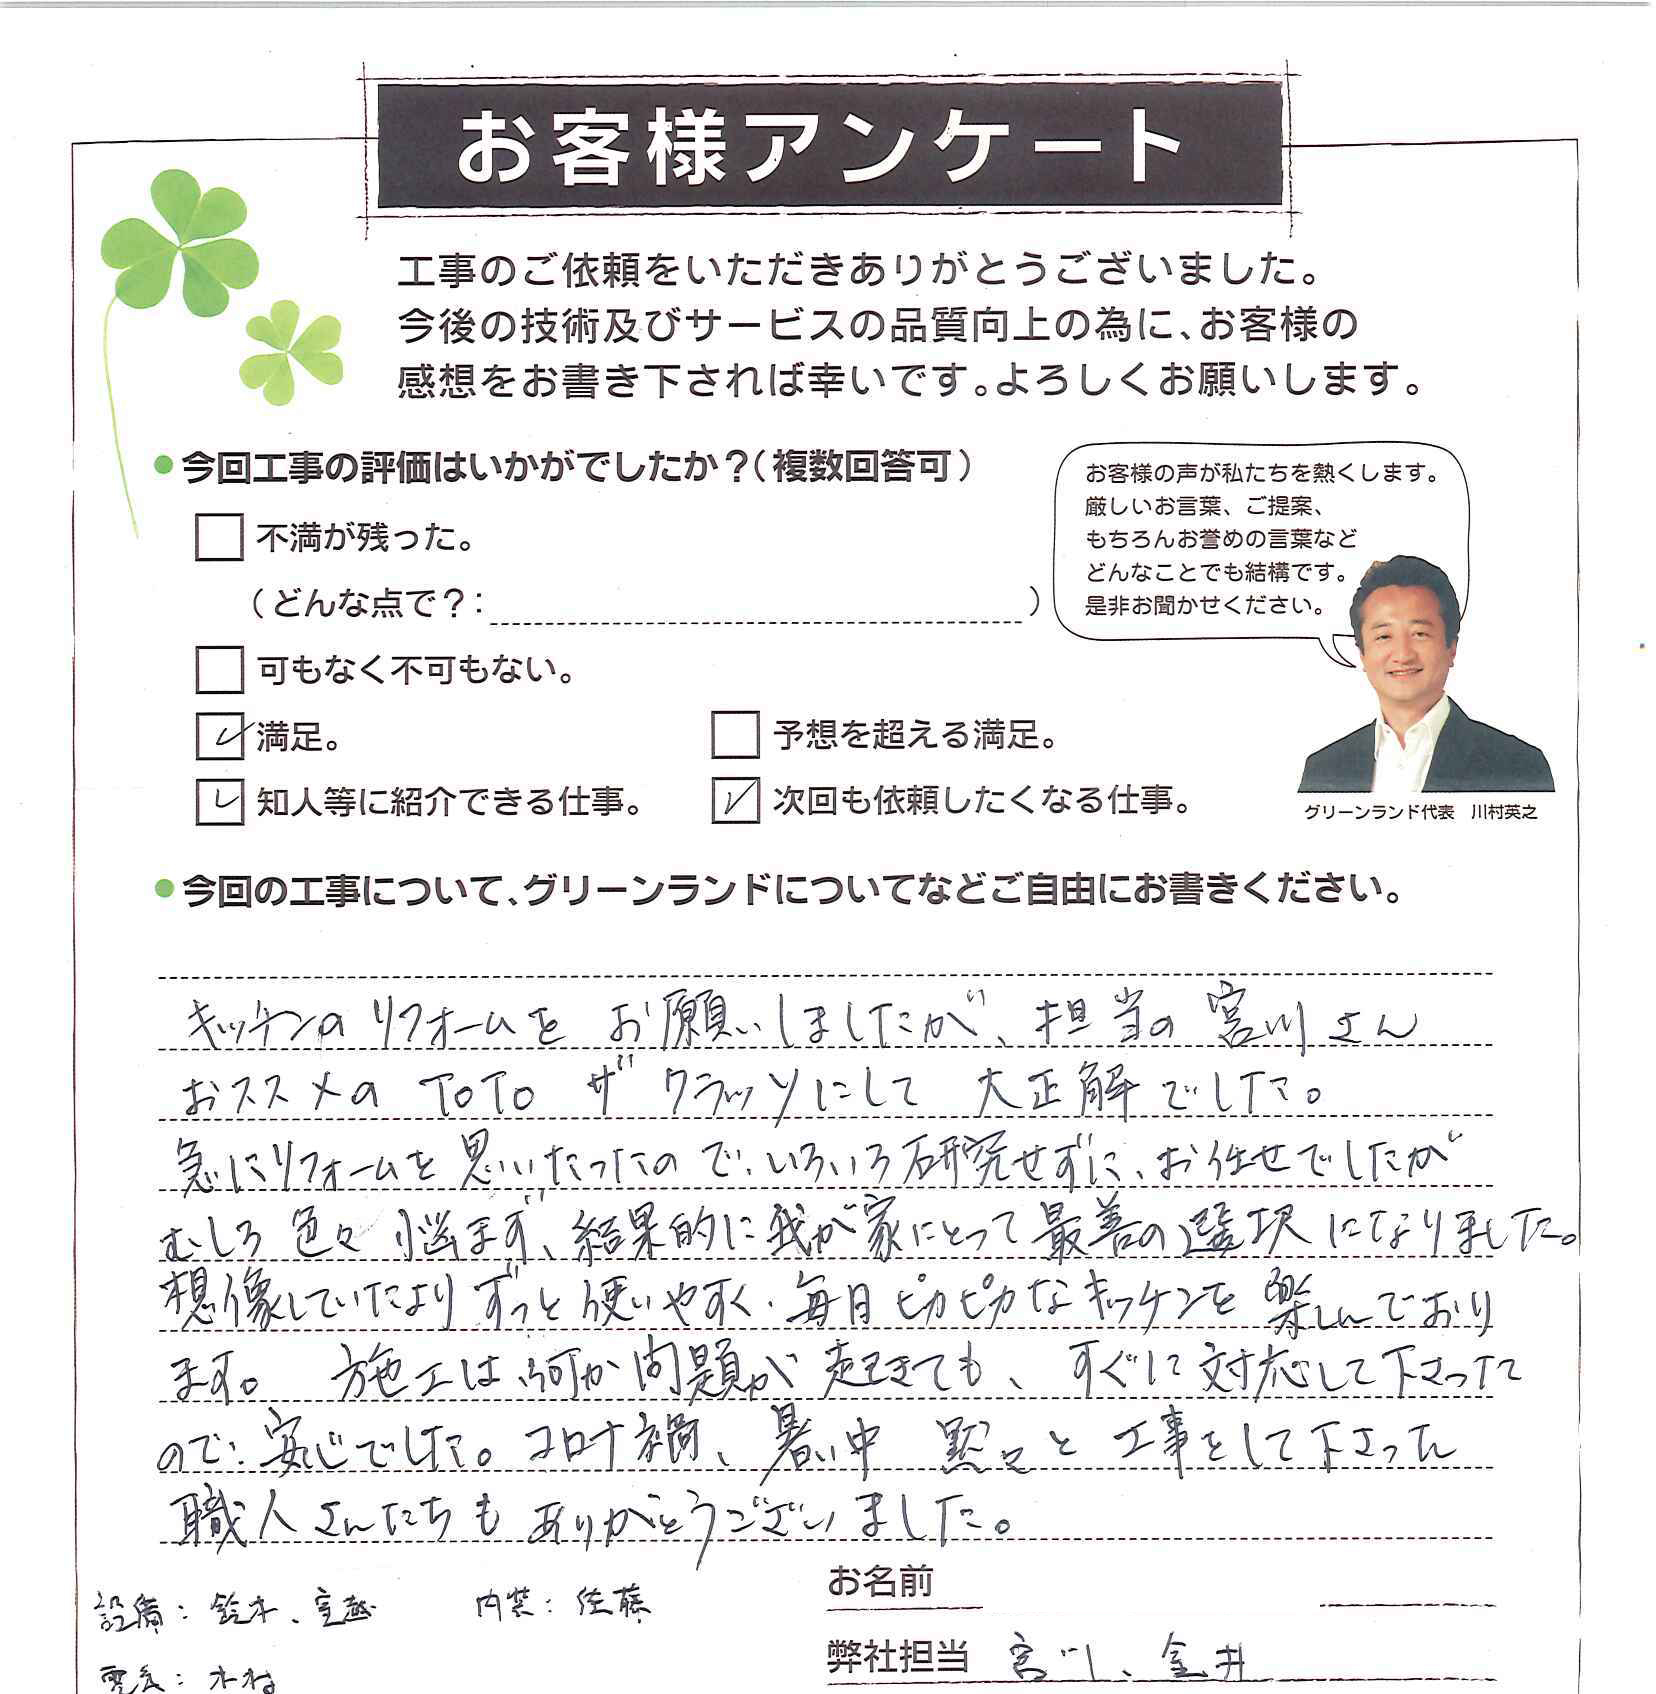 お客様アンケート
工事のご依頼をいただきありがとうございました。
今後の技術及びサービスの品質向上の為に、お客様の
感想をお書き下されば幸いです。よろしくお願いします。
●今回工事の評価はいかがでしたか?(複数回答可)
不満が残った。
(どんな点で?: )
可もなく不可もない。
満足。 予想を超える満足。
知人等に紹介できる仕事。 次回も依頼したくなる仕事。
お客様の声が私たちを熱くします。
厳しいお言葉、ご提案、
もちろんお誉めの言葉など
どんなことでも結構です。
是非お聞かせください。
グリーンランド代表 川村英之
●今回の工事について、グリーンランドについてなどご自由にお書きください。
キッチンのリフォームをお願いしましたが、担当の宮川さん
おススメの TOTO ザ クラッソにして 大正解でした。
急にリフォームを思いたったので、いろいろ研究せずに、お任せでしたが
むしろ色々悩まず、結果的に我が家にとって最善の選択になりました。
想像していたよりずっと使いやすく、毎日ピカピカなキッチンを楽しんでおり
ます。 施工は、何か問題が起きても、すぐに対応して下さった
ので、安心でした。コロナ禍、暑い中 黙々と工事をして下さった
職人さんたちもありがとうございました。
設備: 鈴木、宮越 内装: 佐藤
電気: 木村
お名前
弊社担当 宮川、金井